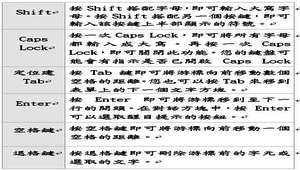 Shift
按 Shift 搭配字母，即可輸入大寫字
母。按 Shift 搭配另一個按鍵，即可
輸入該按鍵上半部顯示的符號。
Caps
Lock
按一次 Caps Lock，即可將所有字母
都輸入成大寫。再按一次 Caps
Lock，即可關閉此功能。您的鍵盤可
能會有指示是否已開啟 Caps Lock
定位鍵
Tab
按 Tab 鍵即可將游標向前移動數個
空格的距離。您也可以按 Tab 來移到
表單上的下一個文字方塊。
Enter
按 Enter 即可將游標移到至下一
行的開頭。在對話方塊中，按 Enter
可以選取醒目提示的按鈕。
空格鍵
按空格鍵即可將游標向前移動一個
空格的距離。
退格鍵
按退格鍵即可刪除游標前的字元或
選取的文字。